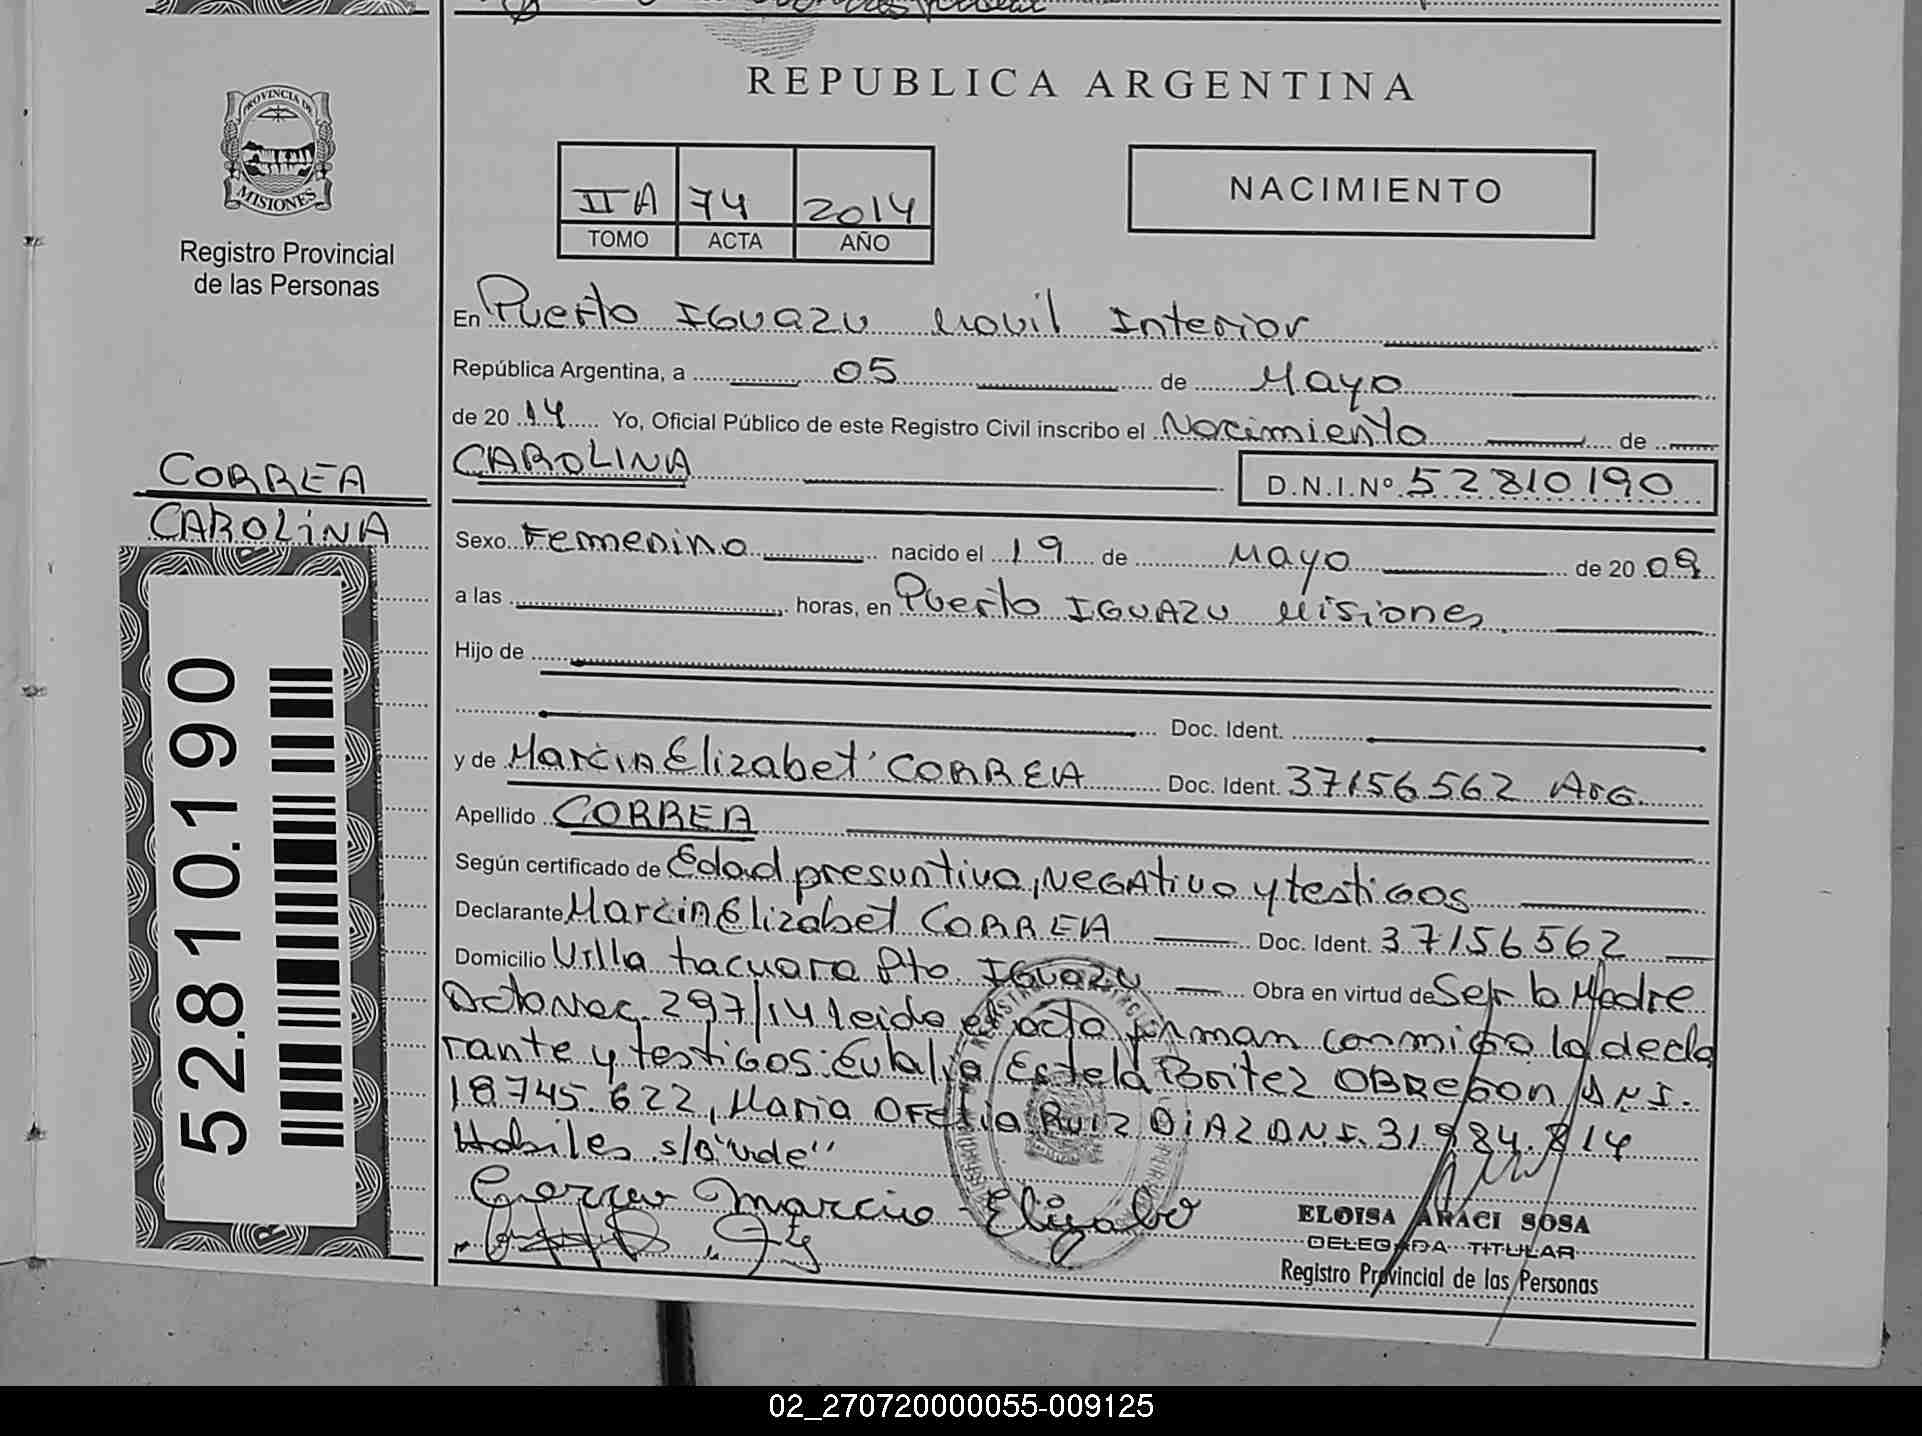 REPUBLICA ARGENTINA
PROVINCIA DE
MISIONES
Registro Provincial
de las Personas
II A 74 2014
TOMO ACTA AÑO
NACIMIENTO
En Puerto IGUAZU Movil Interior
República Argentina, a 05 de Mayo
de 2014 Yo, Oficial Público de este Registro Civil inscribo el Nacimiento de
CAROLINA D.N.I.Nº 52810190
CORREA
CAROLINA
Sexo Femenino nacido el 19 de Mayo de 2009
a las horas, en Puerto IGUAZU Misiones
Hijo de
Doc. Ident.
y de Marcia Elizabet CORREA Doc. Ident. 37156562 Arg.
Apellido CORREA
Según certificado de Edad presuntiva, NEGAtivo y testigos
Declarante Marcia Elizabet CORREA Doc. Ident. 37156562
Domicilio Villa tacuara Pto. IGUAZU Obra en virtud de Ser la Madre
Acta Nac 297/14 leida el acta firman conmigo la decla
rante y testigos: Eulalia Estela Benitez OBREGON DNI.
18745.622, Maria OFelia Ruiz DiAZ DNI. 31984.814
Habiles s/a "vde"
Correa Marcia Elizabe
ELOISA ARACI SOSA
DELEGADA TITULAR
Registro Provincial de las Personas
52.810.190
02_270720000055-009125